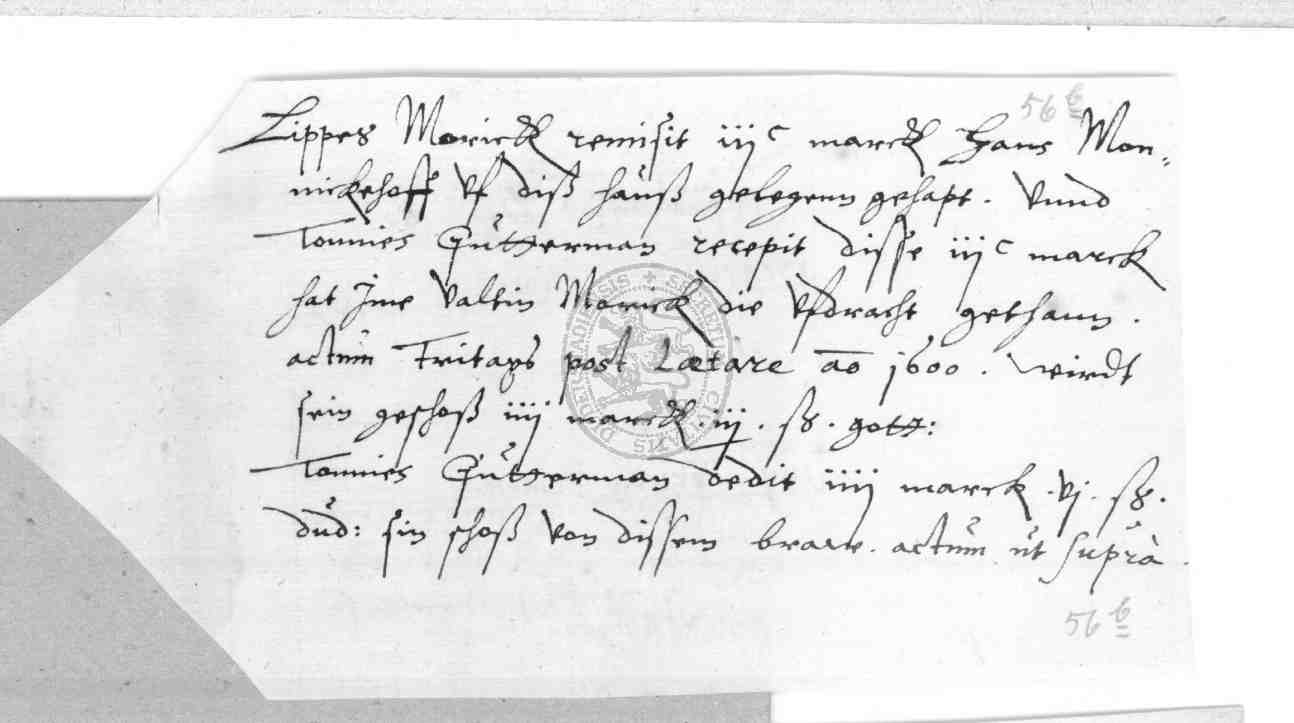 56 b
Lippes Morick remisit iijc marck Hans Mon-
nickehoff vf diß hauß gelegenn gehapt. Vnnd
Tonnies Gütterman recepit disse iijc marck
hat Ime Valtin Morick die vfdracht gethann.
actum Fritags post Lætare ao 1600. wirdt
sein geschoß iiij marck. iij. sß. gott:
Tonnies Gütterman dedit iiij marck. vj. sß.
düd: sin schoß von dissem braew. actum ut suprà.
56 b